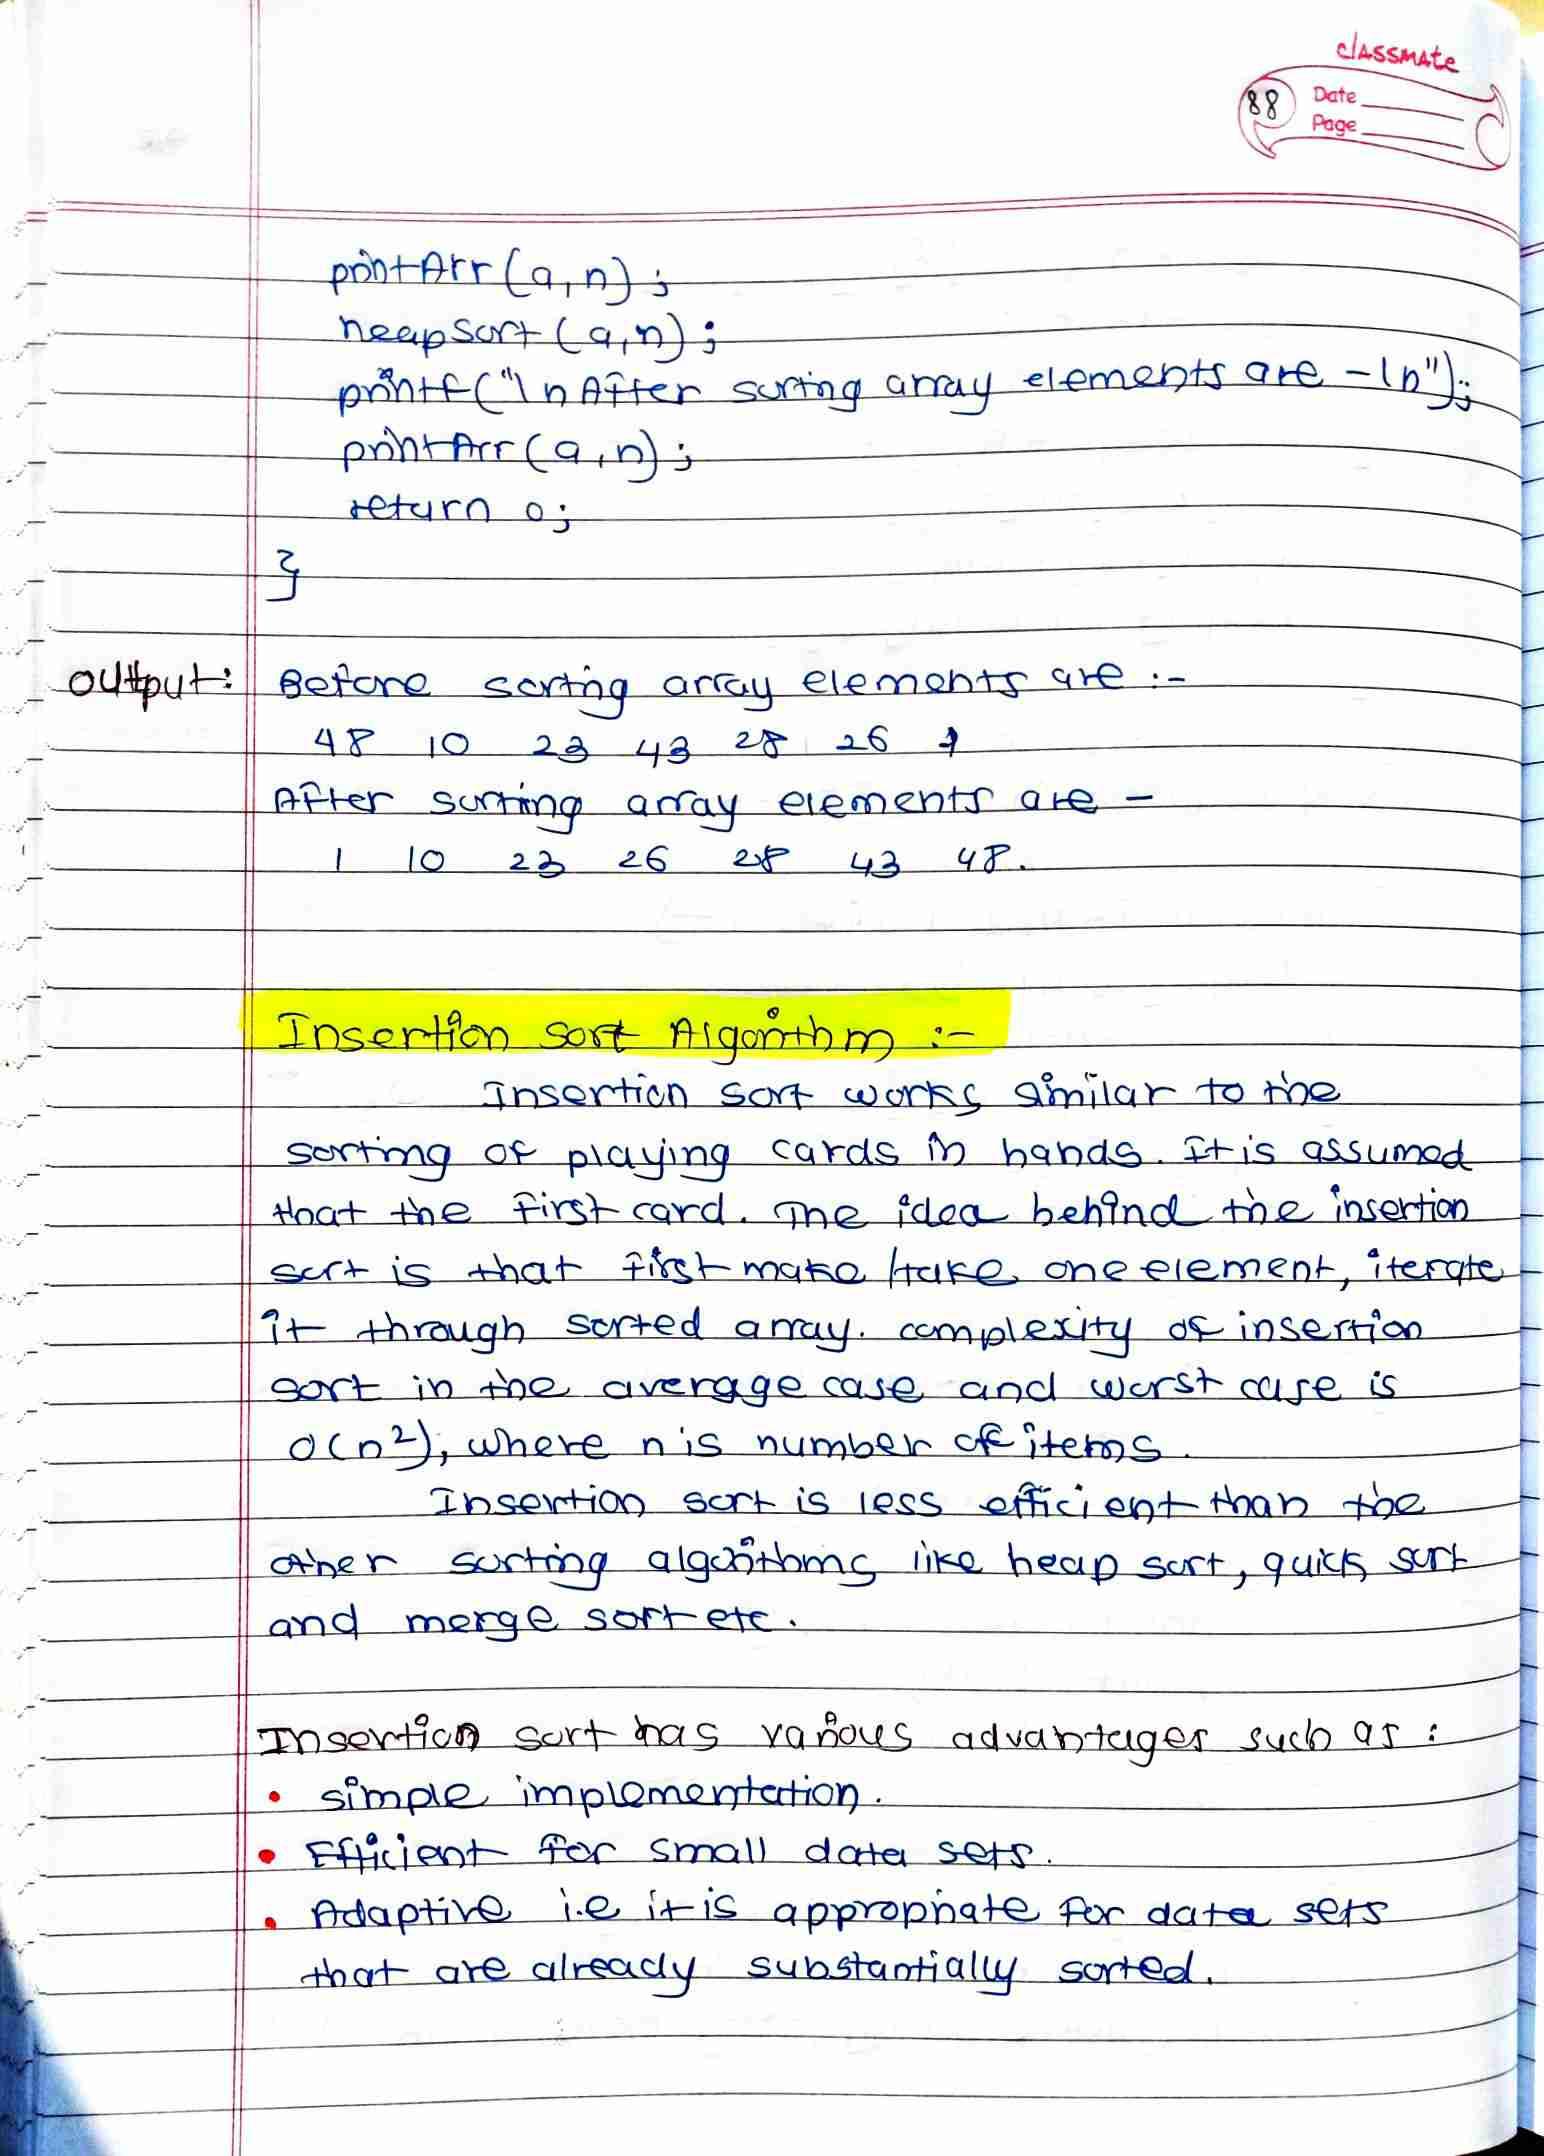 classmate
88 Date
Page
printArr(a,n);
heapsort(a,n);
printf("\n After sorting array elements are -\n");
printArr(a,n);
return 0;
}
output: Before sorting array elements are :-
48 10 23 43 28 26 1
After sorting array elements are -
1 10 23 26 28 43 48.
Insertion sort Algorithm :-
Insertion sort works similar to the
sorting of playing cards in hands. It is assumed
that the first card. The idea behind the insertion
sort is that first make/take one element, iterate
it through sorted array. complexity of insertion
sort in the average case and worst case is
O(n²), where n is number of items.
Insertion sort is less efficient than the
other sorting algorithms like heap sort, quick sort
and merge sort etc.
Insertion sort has various advantages such as :
• simple implementation.
• Efficient for small data sets.
• Adaptive i.e it is appropriate for data sets
that are already substantially sorted.